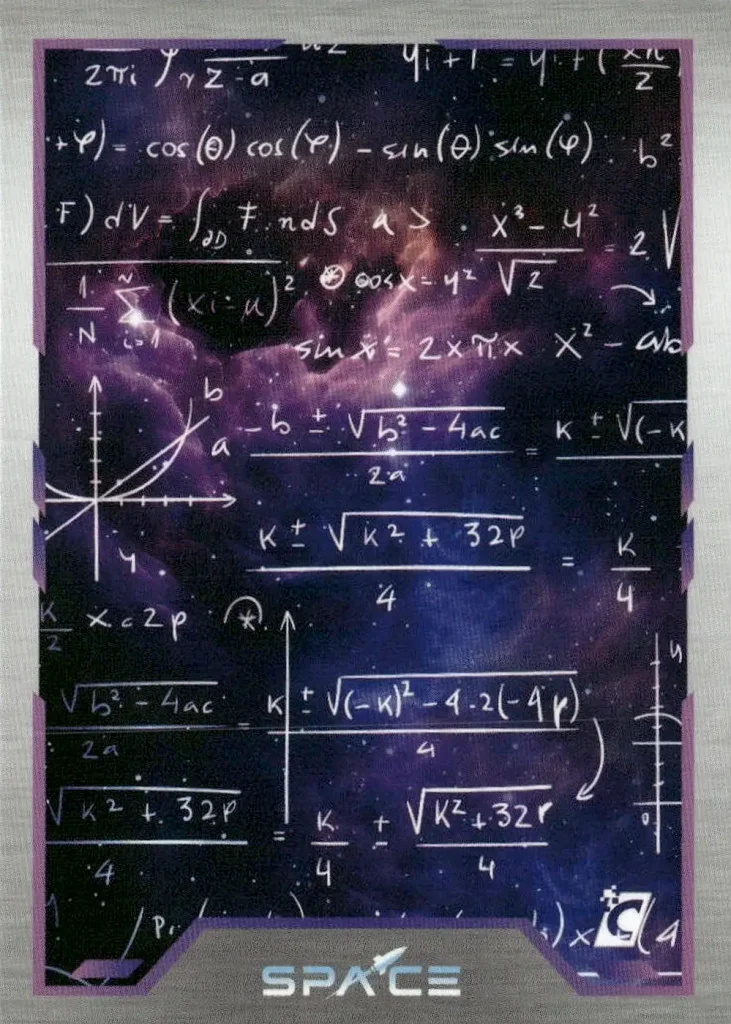 2πi ∫γ z - a
yi+1 = yi + ( xn / 2
+φ) = cos(θ) cos(φ) - sin(θ) sin(φ) b²
F) dV = ∫∂D F nds a > (x³ - 4²) / √2 = 2 √
1/N Σ N i=1 (xi - μ)² ⊛ cosx = y²
sin x = 2 x π x x² -
b
a
(-b ± √(b² - 4ac)) / 2a = K ± √(-K
y
(K ± √(K² + 32p)) / 4 = K/4
K/2 x = 2p *
y
√(b² - 4ac) / 2a = (K ± √((-K)² - 4·2(-4p))) / 4
0
√(K² + 32p) / 4 = K/4 ± √(K² + 32p) / 4
C
) x (4
SPACE